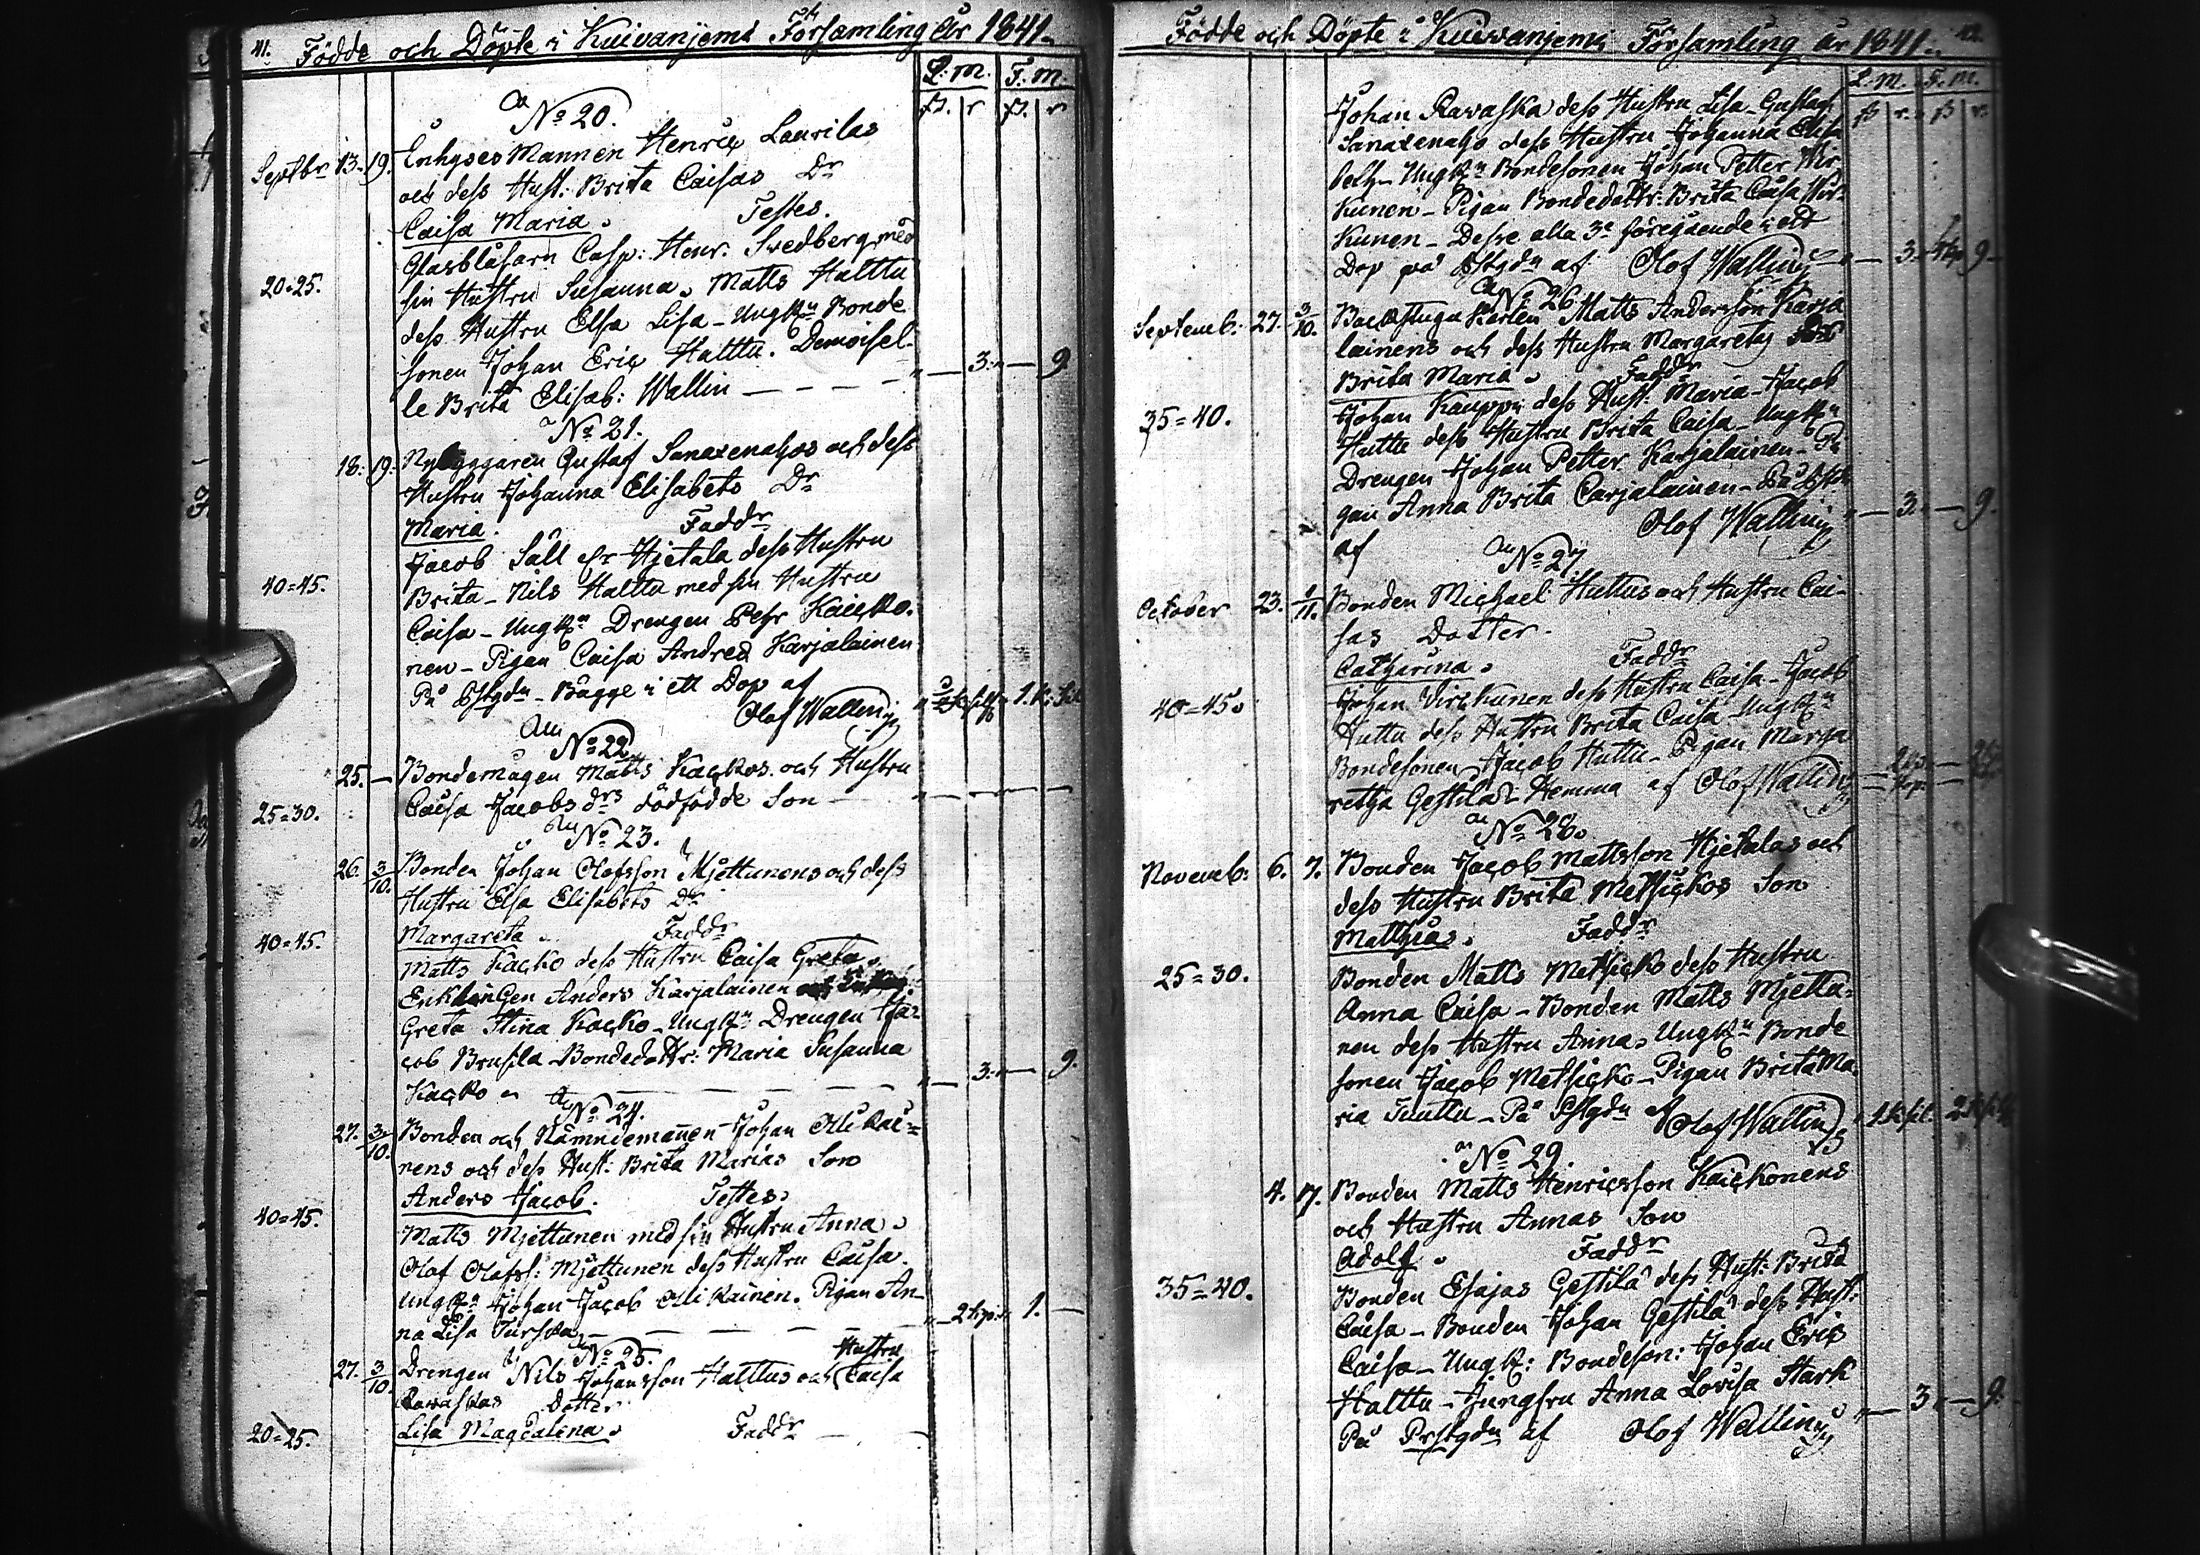 41. Födde och Döpte i Kuivanjemi Församling År 1841.
P. m. F. m.
No 20.
Septbr 13. 19. Inhyses Mannen Henric Laurilas
och dess Hust: Brita Caisas Dr
Caisa Maria. Testes.
Glasblåsarn Casp: Henr. Swedberg med
20=25. sin Hustru Susanna. Matts Halttu
dess Hustru Elsa Lisa – Ungk:n Bonde
sonen Johan Eric Halttu. Demoisel-
le Brita Elisab: Wallin – 3. – 9
No 21.
18. 19. Nybyggaren Gustaf Sanaxenahos och dess
Hustru Johanna Elisabets Dr
Maria. Faddr
Jacob Sàll Hjetala dess Hustru
40=45. Brita – Nils Halttu med sin Hustru
Caisa – Ungk:n Drengen Pehr Kaicko.
nen – Pigan Caisa Andred Karjalainen
På Pstgdn – Bägge i ett Dop af
Olof Wallin
No 22
25. – Bondemågen Matts Kackos och Hustru
25=30. Caisa Jacobs drs dödfödde Son
No 23.
26. 3/10. Bonden Johan Olofsson Mjettunens och dess
Hustru Elsa Elisabets Dr
40=45. Margareta. Faddr
Matts Kacko dess Hustru Caisa Greta.
Enklingen Anders Karjalainen
Greta Stina Kacko – Ungk:n Drengen Ja-
cob Brusila – Bondedottr: Maria Susanna
Kacko – 3. – 9.
No 24.
27. 3/10. Bonden och Nämndemañen Johan Ollikai=
nens och dess Hust: Brita Marias Son
Anders Jacob. Testes.
40=45. Matts Mjettunen med sin Hustru Anna.
Olof Olofss: Mjettunen dess Hustru Caisa.
Ungk:n Johan Jacob Ollikainen. Pigan An-
na Lisa Turska – 2 kp. 1. –
No 25.
Hustru
27. 3/10 Drengen Nils Johansson Halttus och Caisa
Rawaskas Dotter
20=25. Lisa Magdalena. Faddr
Födde och Döpte i Kuivanjemi Församling År 1841. 42.
P. m. F. m.
Johan Rawaska dess Hustru Lisa – Gustaf
Sanaxenaho dess Hustru Johanna Elisa
beth – Ungk:n Bondesonen Johan Petter Wir
kunen – Pigan Bondedottr: Brita Caisa Wir-
kunen – Desse alla 3e föregående i ett
Dop på Pstgdn af Olof Wallin – 3. – 9 –
No 26
Septemb: 27. 3/10. Backstugu Karlen Matts Andersson Karja
lainens och dess Hustru Margaretas
Brita Maria. Faddr
35=40. Johan Kauppi dess Hust: Maria – Jacob
Huttu dess Hustru Brita Caisa – Ungk:n
Drengen Johan Petter Karjalainen – Pi
gan Anna Brita Carjalainen – På Pstgdn
af Olof Wallin – 3. – 9.
No 27
October 23. 1/11. Bonden Michael Huttus och Hustru Cai-
sas Dotter.
Catharina. Faddr
40=45. Johan Virckunen dess Hustru Caisa – Jacob
Huttu dess Hustru Brita Caisa – Ungk:n
Bondesonen Jacob Huttu – Pigan Marga
retha Gestilä – Hemma af Olof Wallin
No 28.
Novemb: 6. 7. Bonden Jacob Mattsson Hjetalas och
dess Hustru Brita Metsickos Son
Matthias. Faddr
25=30. Bonden Matts Metsicko dess Hustru
Anna Caisa – Bonden Matts Mjettu=
nen dess Hustru Anna. Ungk:n Bonde
sonen Jacob Metsicko – Pigan Brita Ma
ria Tuuttu – På Pstgdn af Olof Wallin
No 29
4. 17. Bonden Matts Henricsson Kaickonens
och Hustru Annas Son
Adolf. Faddr
35=40. Bonden Esajas Gestilä dess Hust: Brita
Caisa – Bonden Johan Gestilä dess Hust:
Caisa – Ungk: Bondeson: Johan Eric
Halttu – Jungfru Anna Lovisa Stark
På Prstgdn af Olof Wallin – 3. – 9.